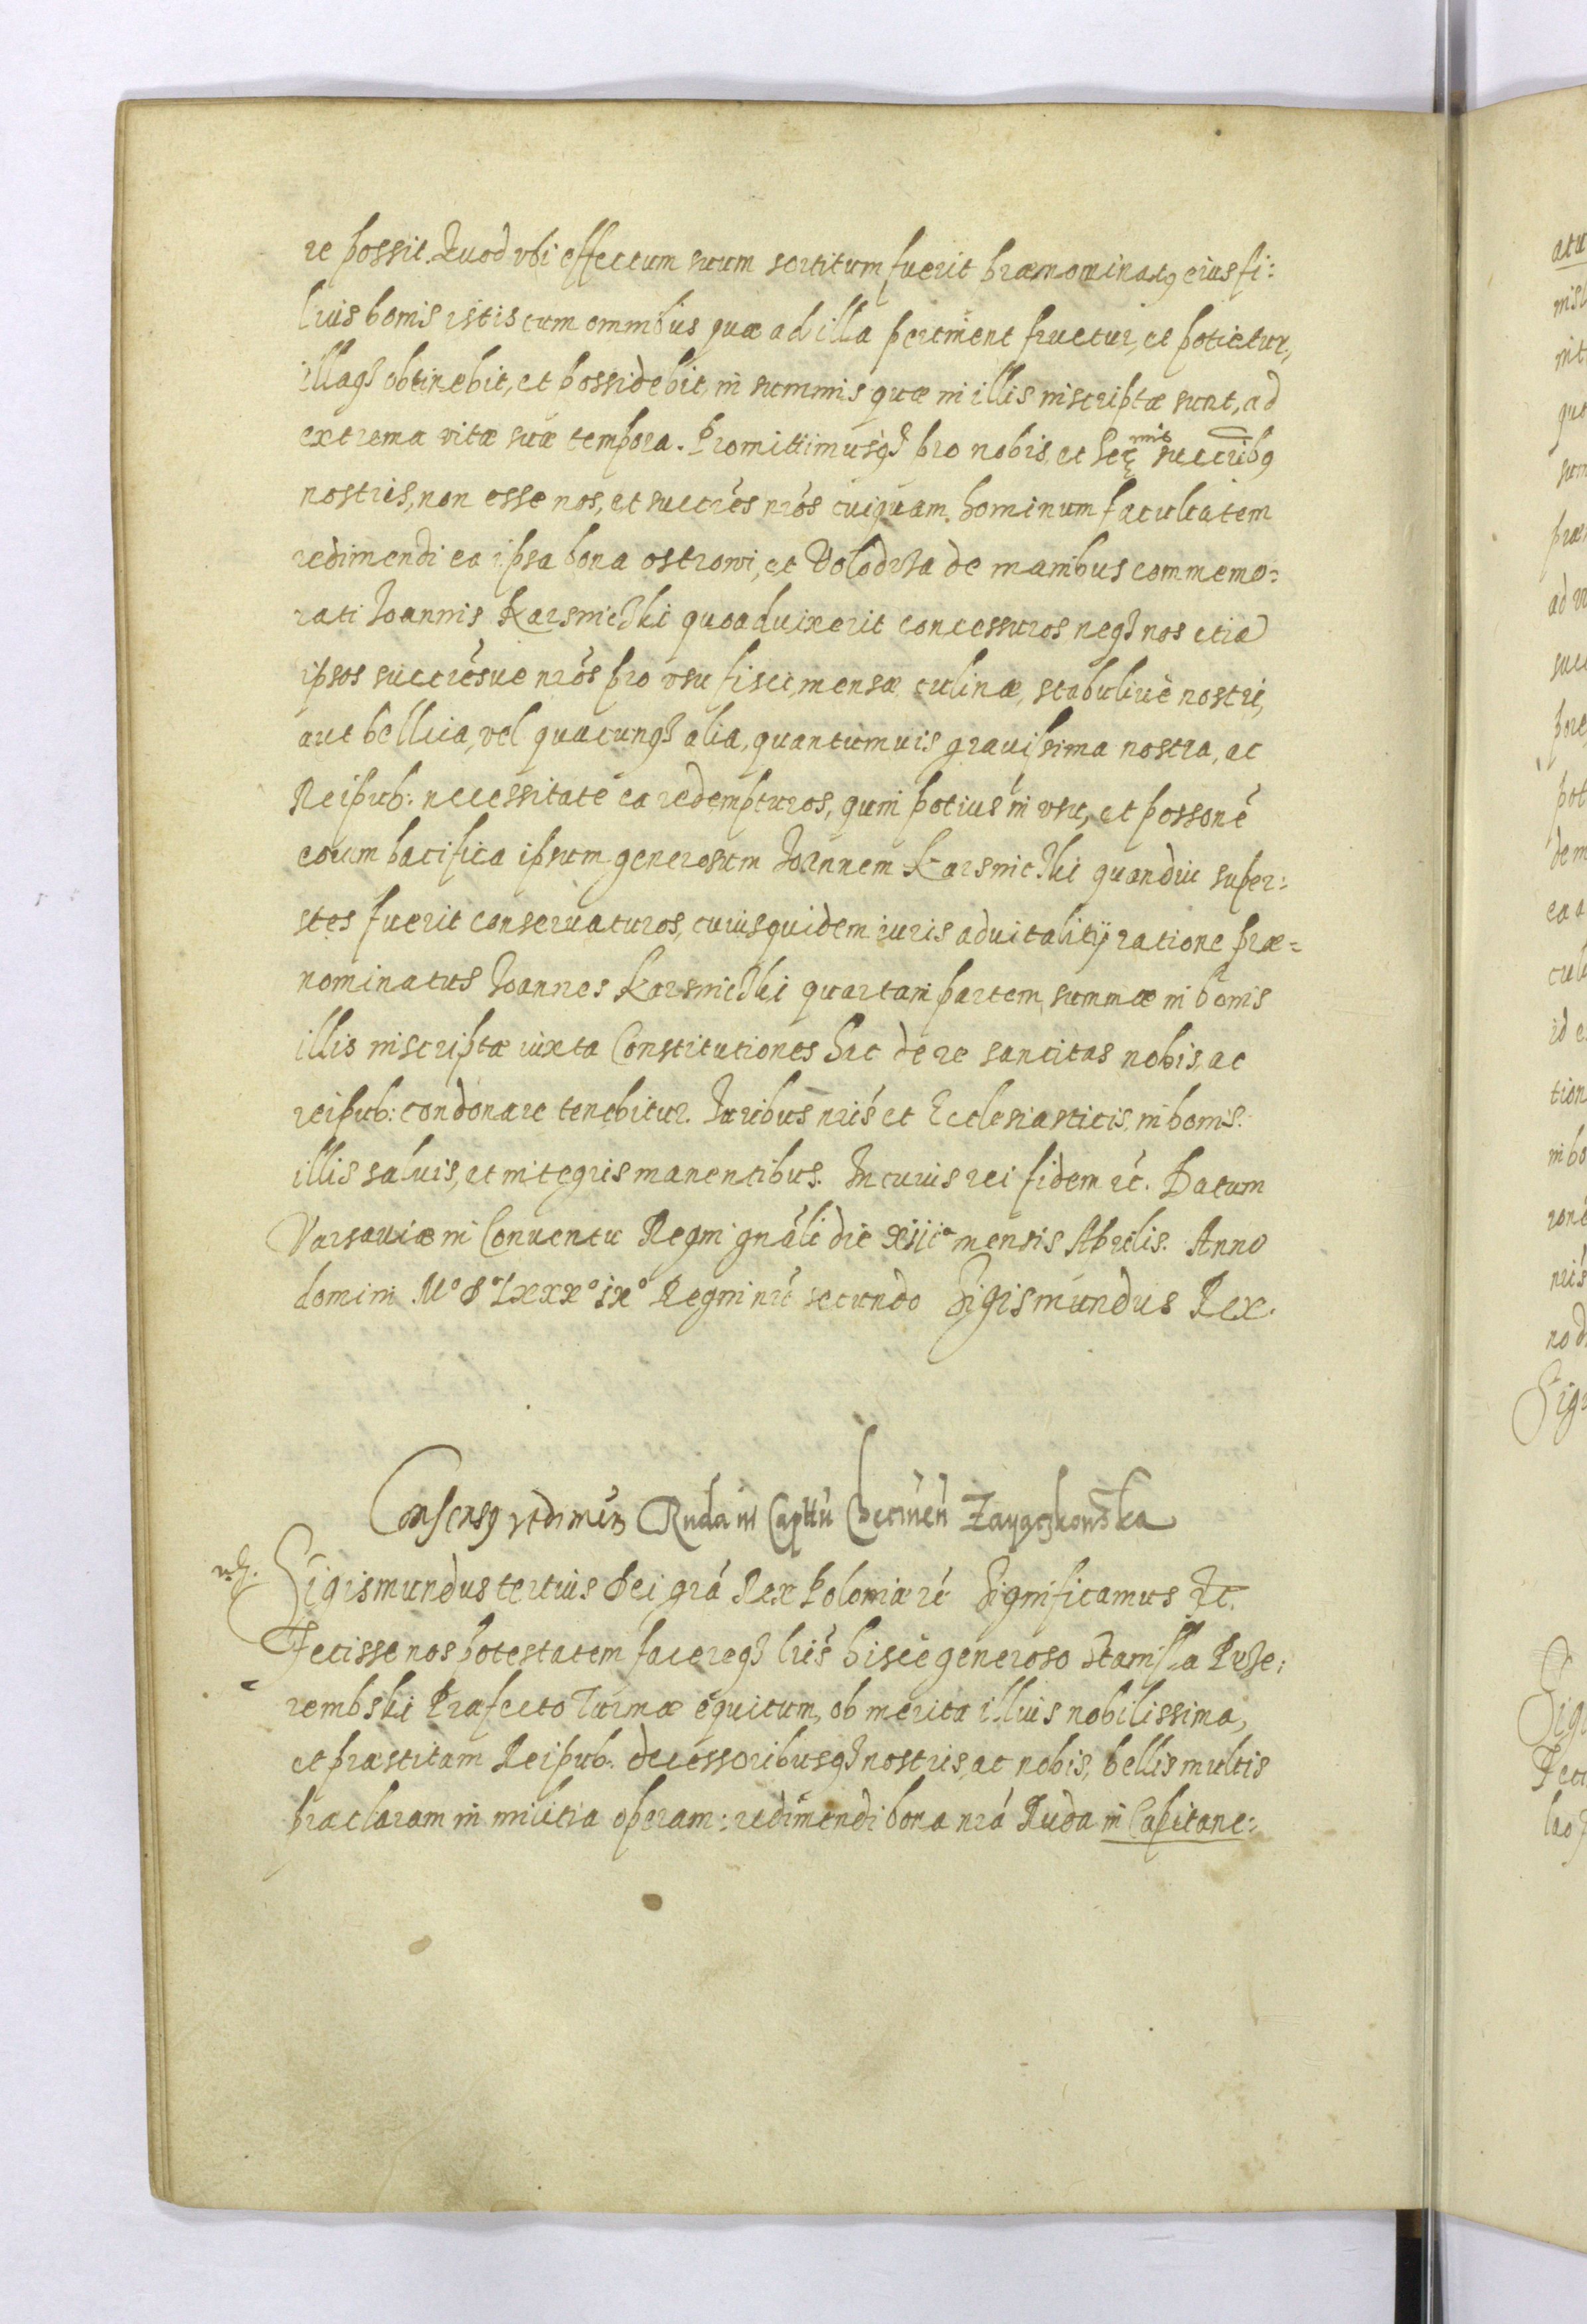 re possit. Quod ubi effectum suum sortitum fuerit praenominatus eius fi:
lius bonis istis cum omnibus quae ad illa pertinent fruetur, et potietur,
illaqз obtinebit, et possidebit, in summis quae in illis inscriptae sunt, ad
extrema vitae suae tempora. Promittimusqз pro nobis, et Ser̃mis succribꝯ
nostris, non esse nos, et succrẽs nr̃os cuiquam hominum facultatem
redimendi ea ipsa bona ostrowi, et Volodrza de manibus commemo=
rati Joannis Karsniczki quoad vixerit concessuros neqз nos etiã
ipsos succrẽsve nr̃os pro usu fisci, mensae culinae, stabulive nostri,
aut bellica, vel quacunqз alia, quantumvis gravissima nostra, ac
Reipub: necessitate ea redempturos, quin potius in usu, et possonẽ
eorum pacifica ipsum generosum Joannem Karsniczki quandiu super:
stes fuerit conservaturos, cuius quidem iuris advitalitij ratione prae=
nominatus Joannes Karsniczki quartam partem summae in bonis
illis inscriptae iuxta Constitutiones hac de re sancitas nobis, ac
reipub: condonare tenebitur. Juribus nr̃is et Ecclesiasticis in bonis.
illis salvis, et integris manentibus. In cuius rei fidem etc̃. Datum
Varsaviae in Conventu Regni gnãli die xiija mensis Aprilis. Anno
domini Mº dº Lxxxº ixº Regni nr̃i secundo Sigismundus Rex.
Consensꝯ redimen Ruda in Capttũ Checinen Zayączkowska
Sigismundus tertius dei grã Rex Poloniae etc̃ Significamus etc.
Fecisse nos potestatem facereqз lrĩs hisce generoso Stanisla Psze:
rembski Praefecto Turmae equitum, ob merita illius nobilissima,
et praestitam Reipub. decessoribusqз nostris, ac nobis, bellis multis
praeclaram in militia operam: redimendi bona nrã Ruda in Capitane: